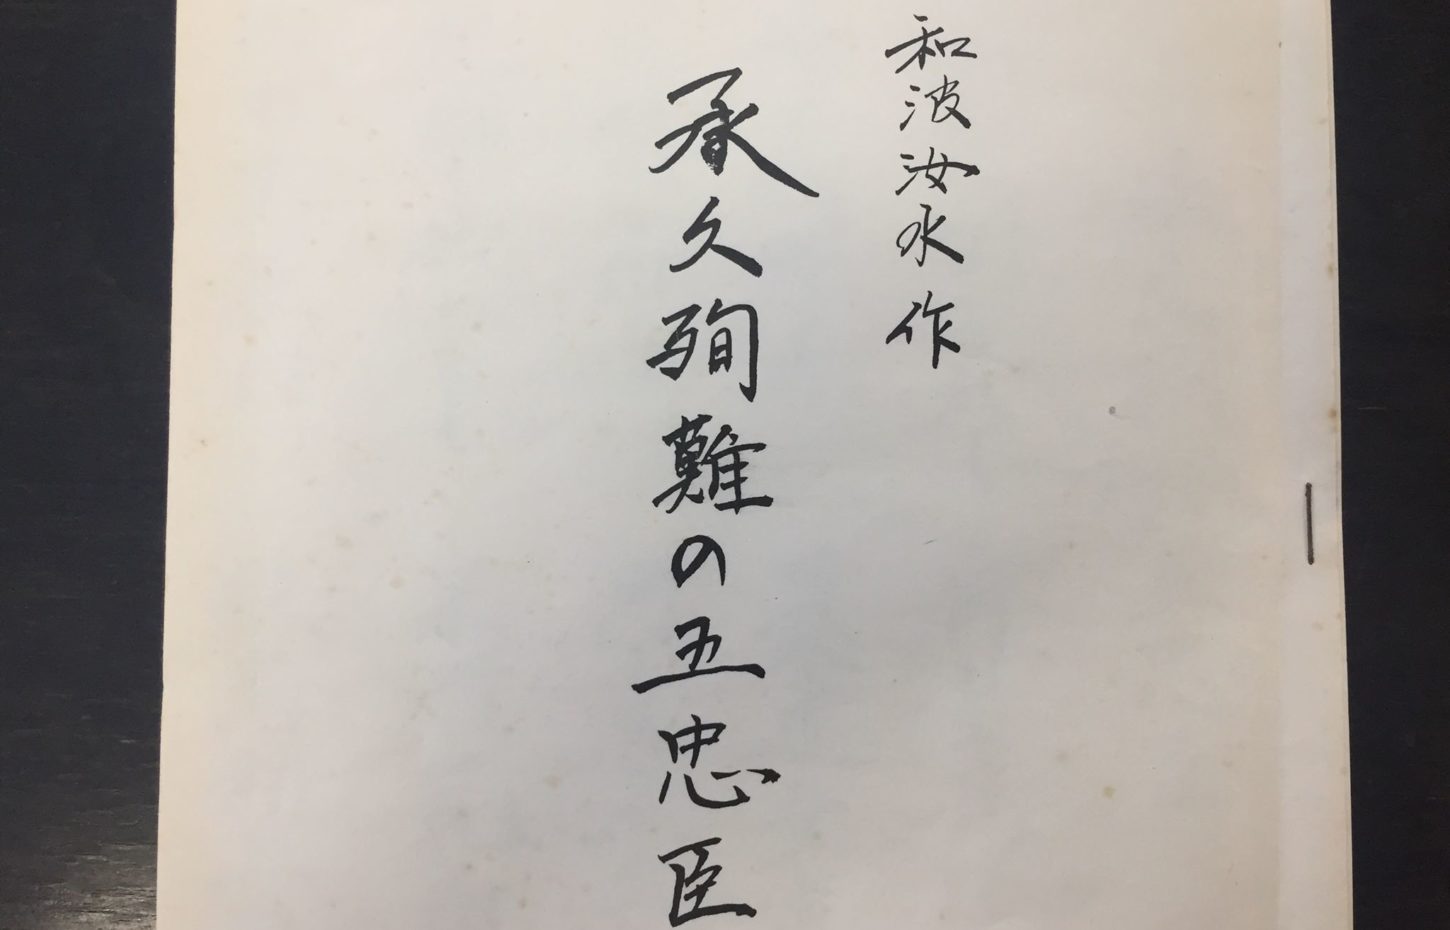 和波汝水作
承久殉難の五忠臣